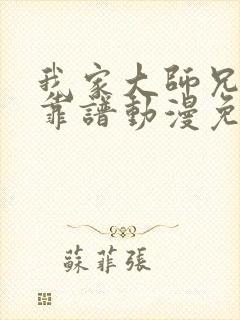 我家大師兄
靠譜動漫免
蘇菲張